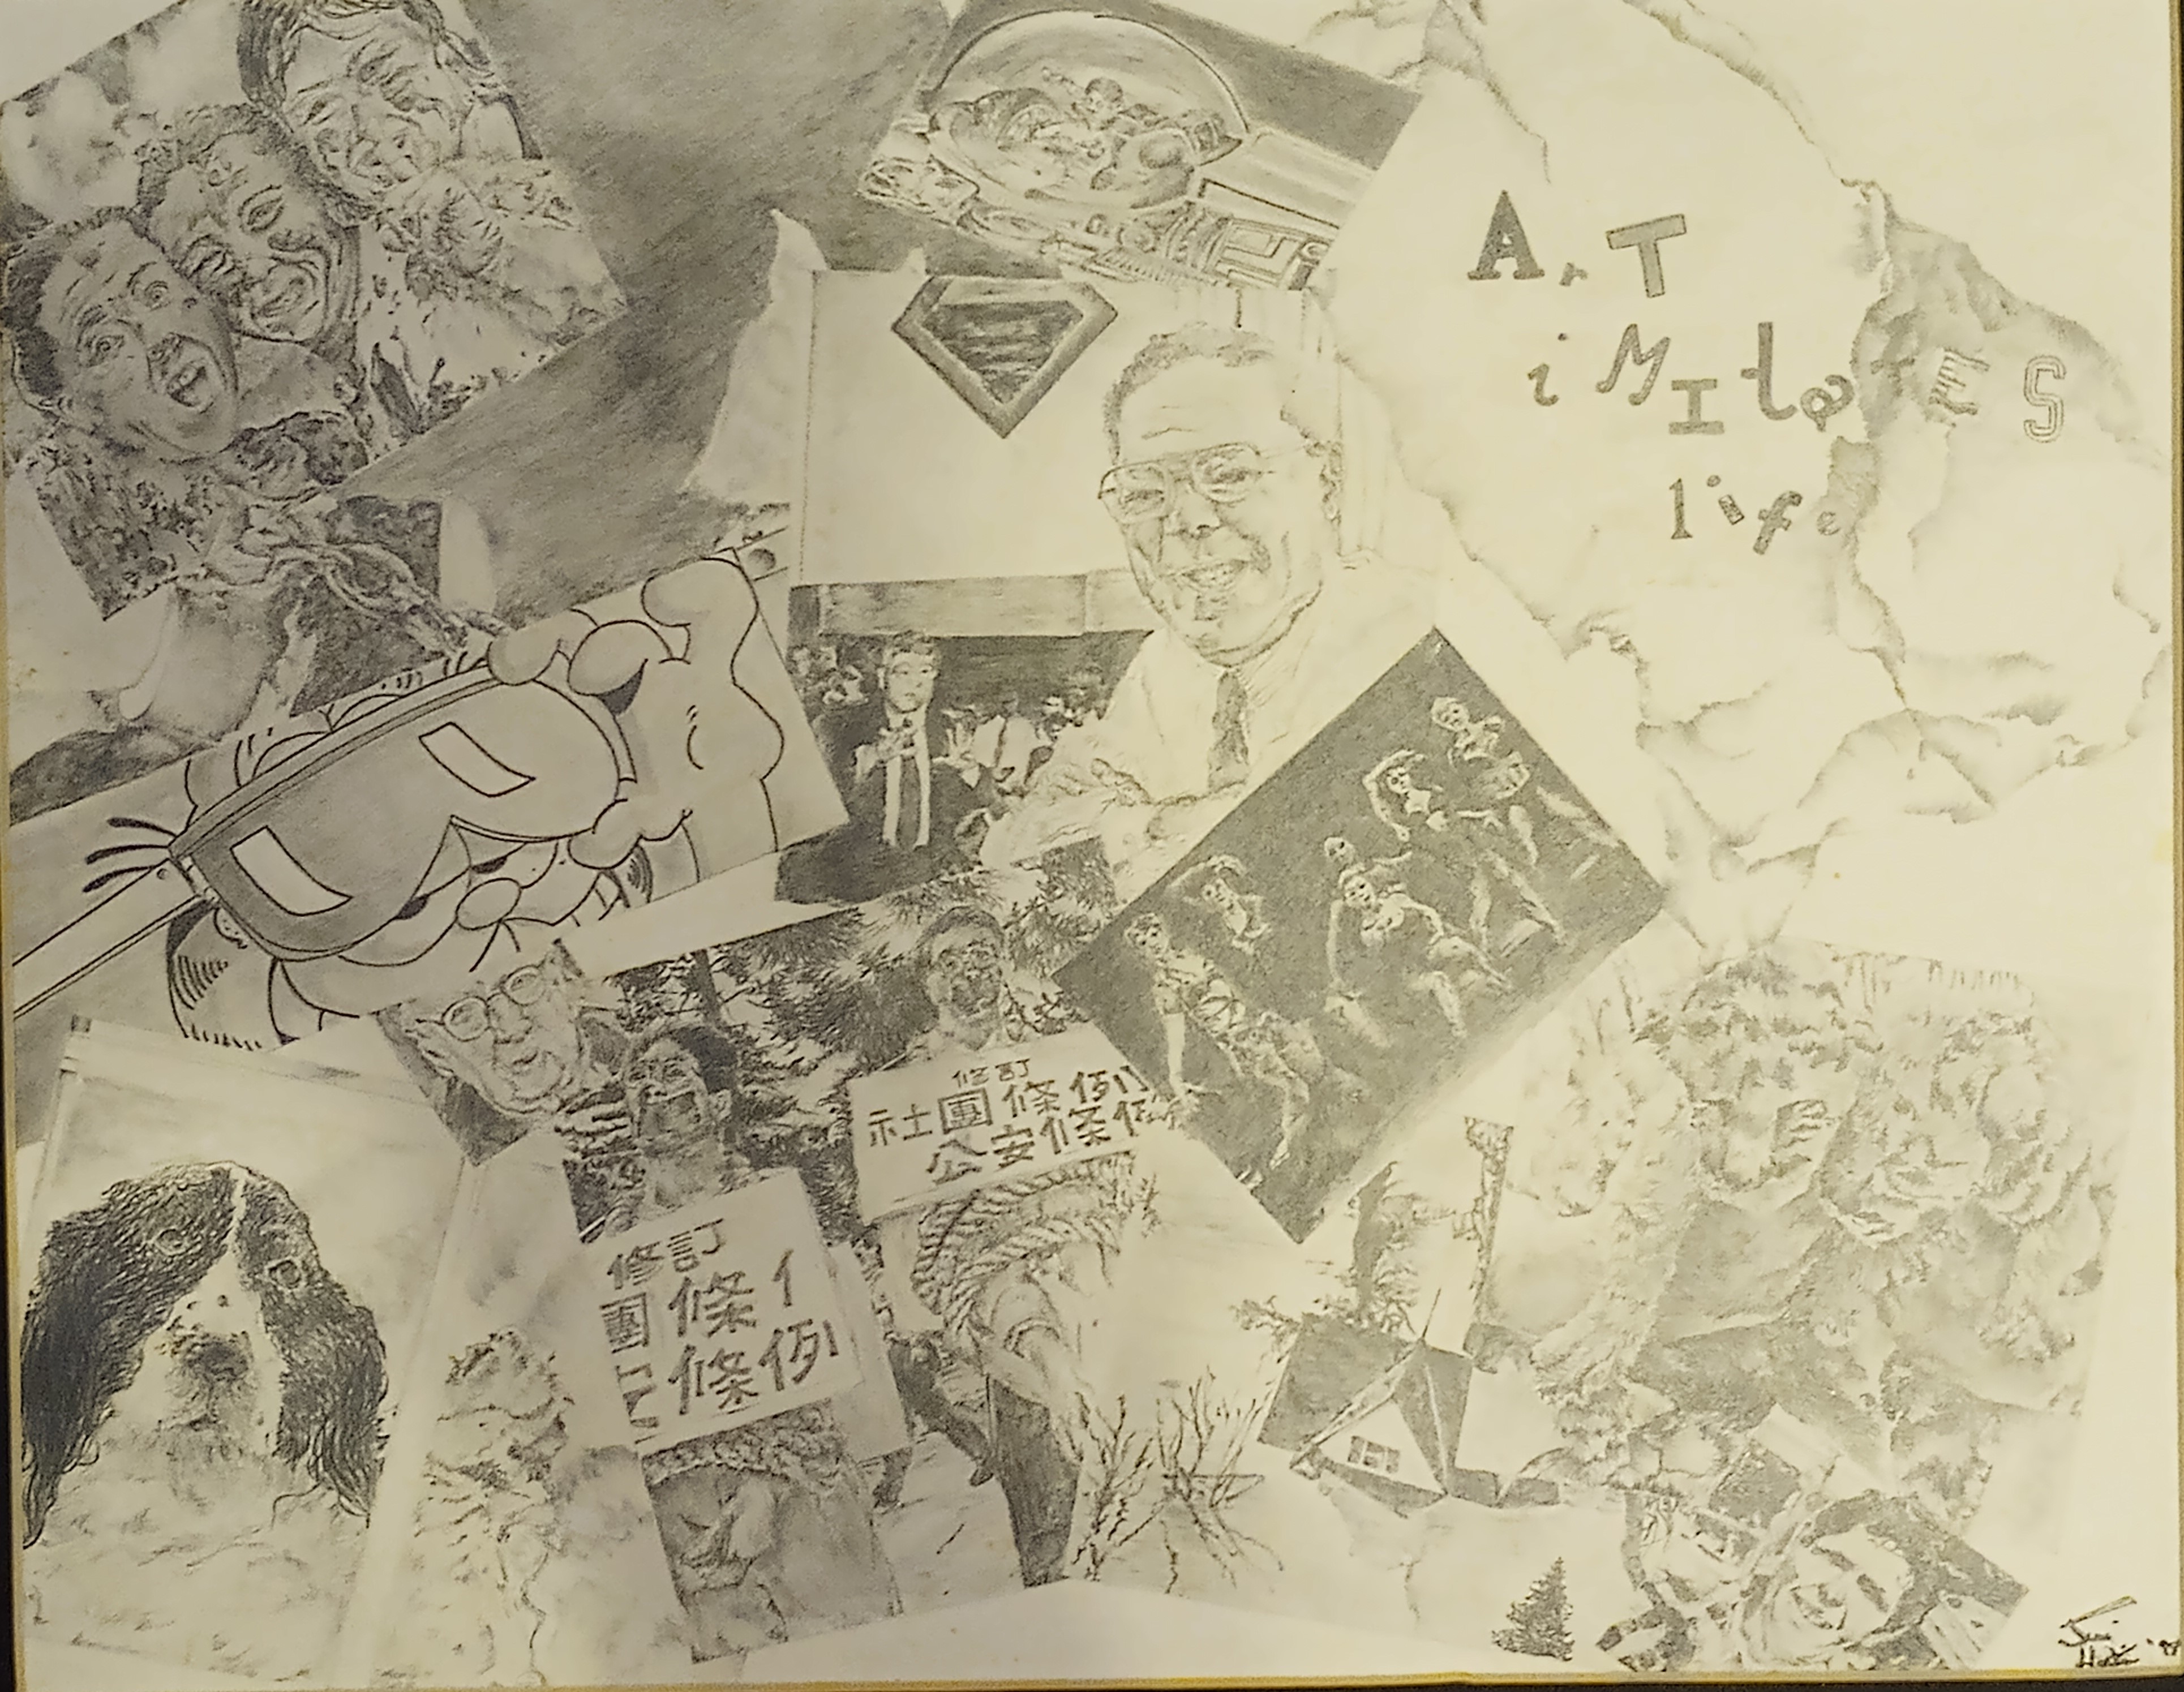 ArT
iMItatES
life
修訂
社團條例
公安條例
修訂
團條亻
條例